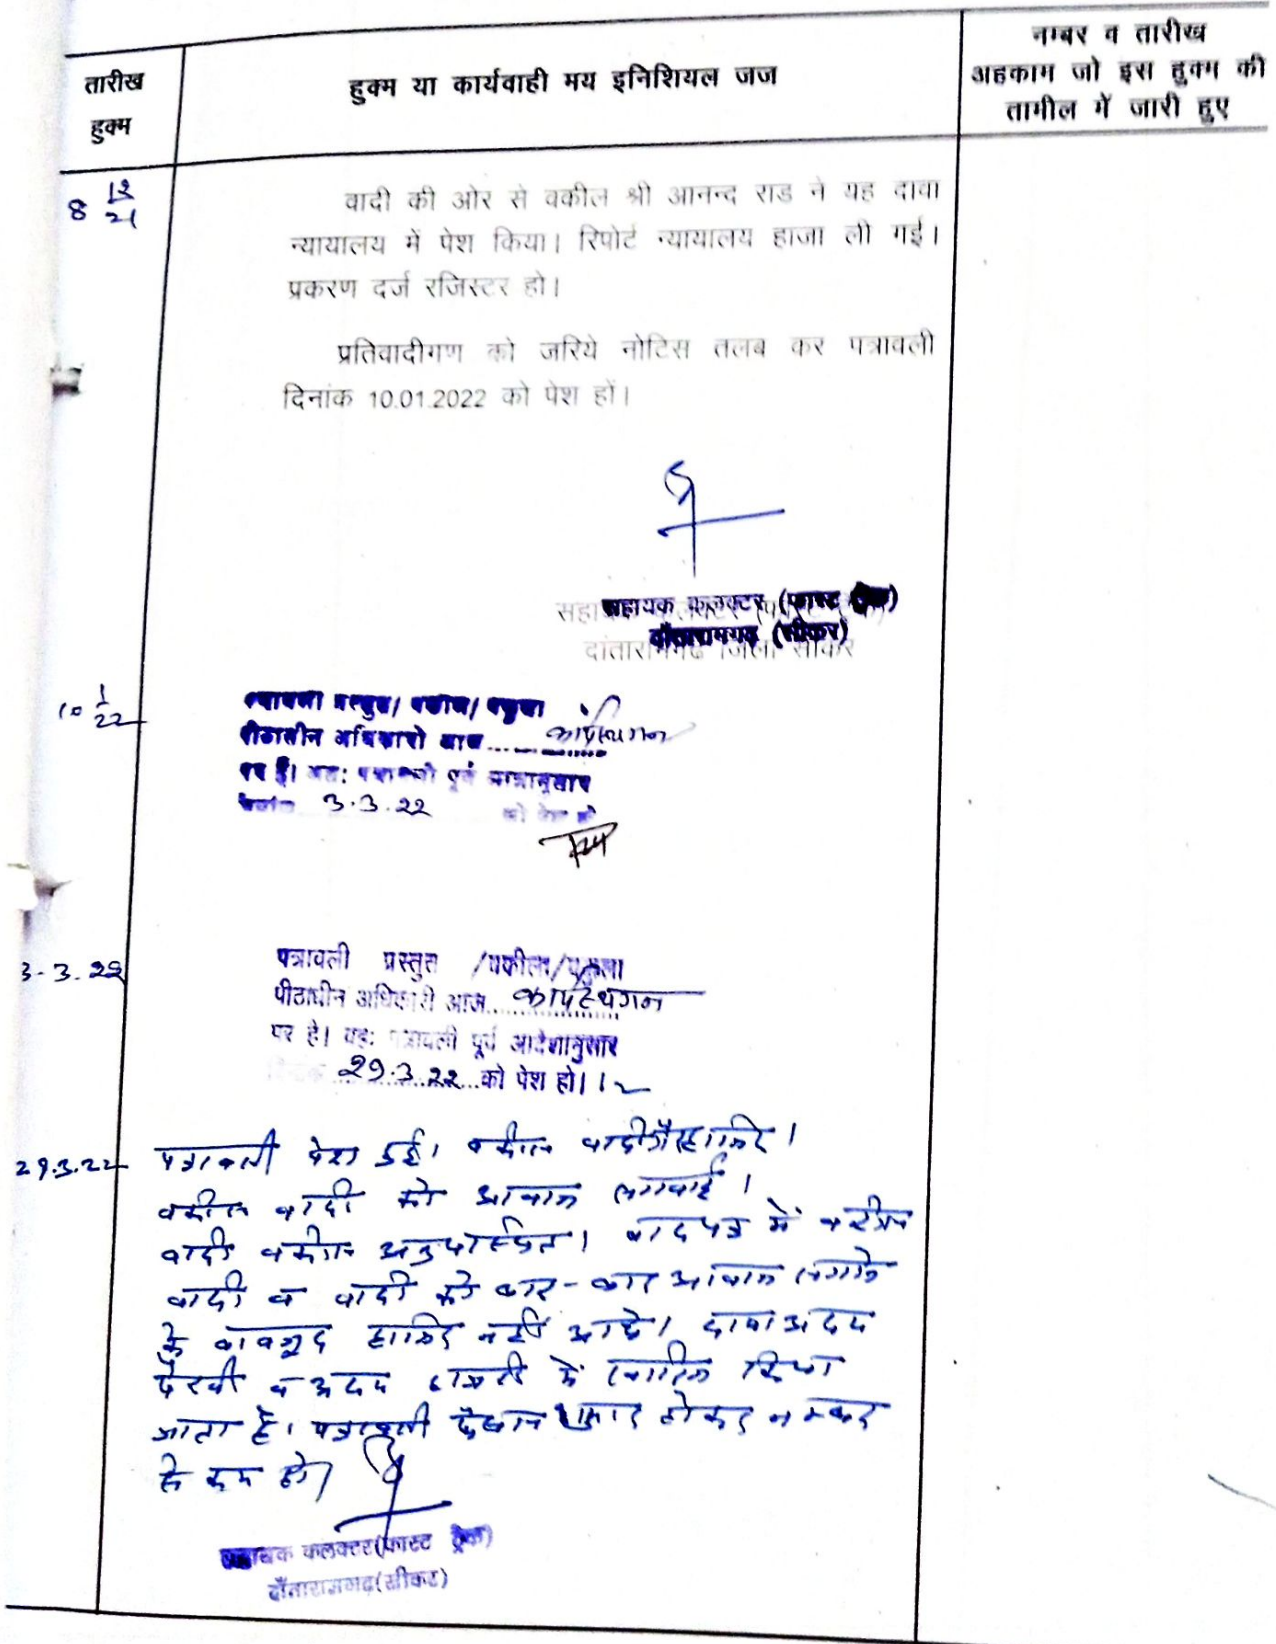 तारीख
हुक्म
हुक्म या कार्यवाही मय इनिशियल जज
नम्बर व तारीख
अहकाम जो इस हुक्म की
तामील में जारी हुए
8 12/21
वादी की ओर से वकील श्री आनन्द राड ने यह दावा
न्यायालय में पेश किया। रिपोर्ट न्यायालय हाजा ली गई।
प्रकरण दर्ज रजिस्टर हो।
प्रतिवादीगण को जरिये नोटिस तलब कर पत्रावली
दिनांक 10.01.2022 को पेश हों।
सहायक कलक्टर (फास्ट ट्रेक)
दाँतारामगढ़ (सीकर)
दांतारामगढ जिला सीकर
10 1/22
पीठासीन अधिकारी आज ...... कार्यस्थगन
पर है। अतः पत्रावली पूर्व आज्ञानुसार
3.3.22 को पेश हो
3-3.22
पत्रावली प्रस्तुत /वकील/
पीठाधीन अधिकारी आज ...... कार्यस्थगन
पर है। पत्रावली पूर्व आदेशानुसार
29.3.22 को पेश हो।
29.3.22
पत्रावली पेश हुई। वकील वादी गैरहाजिर।
वकील वादी को आवाज लगवाई।
वादी वकील अनुपस्थित। वादपत्र में वकील
वादी व वादी को बार-बार आवाज लगाने
के बावजूद हाजिर नहीं आये। दावा अदम
पैरवी व अदम हाजरी में खारिज किया
जाता है। पत्रावली फैसल शुमार होकर नम्बर
से कम हो।
सहायक कलक्टर(फास्ट ट्रेक)
दाँतारामगढ़(सीकर)